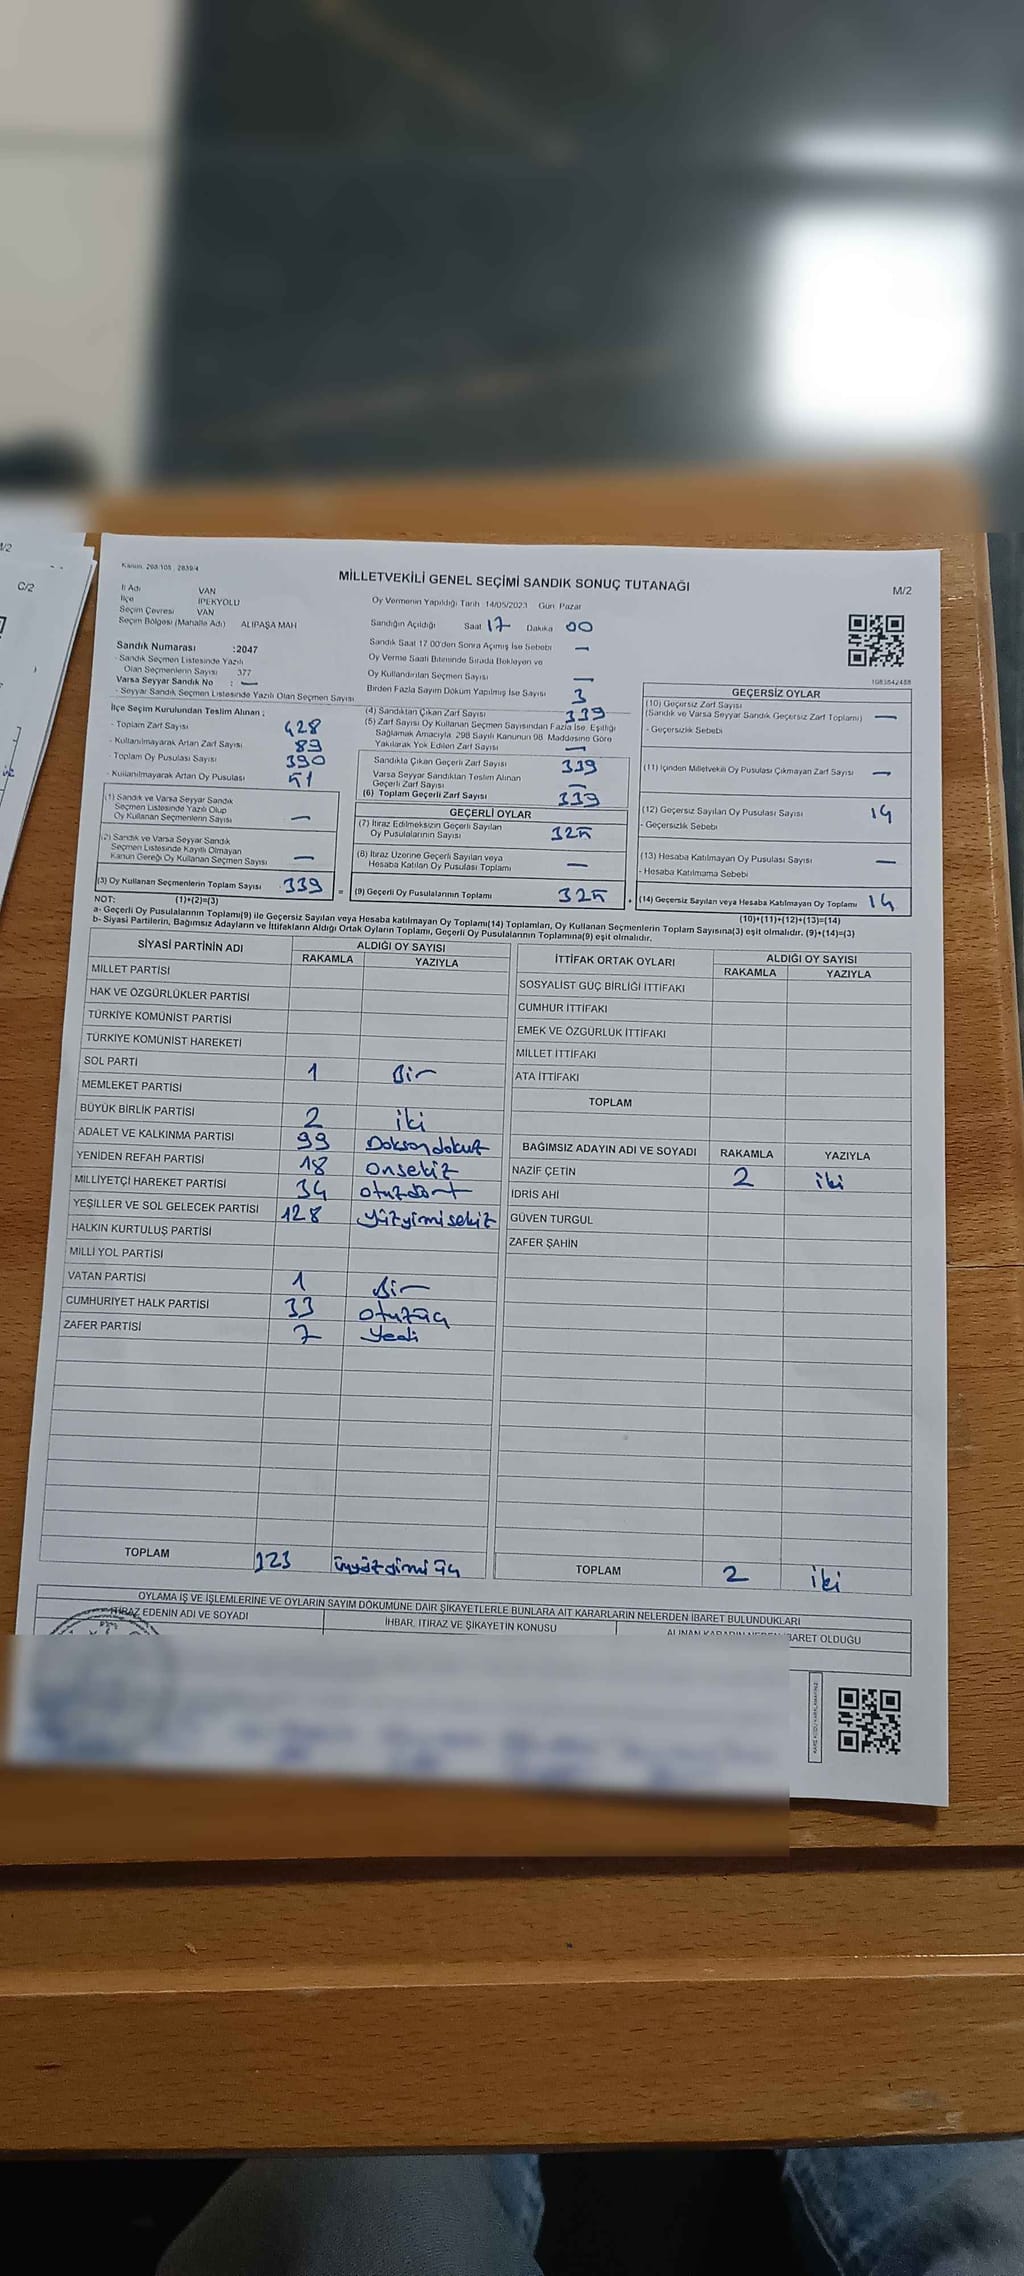 M/2
C/2
Kanun. 298/105 , 2839/4
MİLLETVEKİLİ GENEL SEÇİMİ SANDIK SONUÇ TUTANAĞI
M/2
İl Adı VAN
İlçe İPEKYOLU
Seçim Çevresi VAN
Seçim Bölgesi (Mahalle Adı) ALİPAŞA MAH
Oy Vermenin Yapıldığı Tarih 14/05/2023 Gün Pazar
Sandığın Açıldığı Saat 17 Dakika 00
Sandık Saat 17 00'den Sonra Açımış İse Sebebi —
Oy Verme Saati Bitiminde Sırada Bekleyen ve
Oy Kullandırılan Seçmen Sayısı —
Birden Fazla Sayım Döküm Yapılmış İse Sayısı 3
Sandık Numarası :2047
- Sandık Seçmen Listesinde Yazılı
Olan Seçmenlerin Sayısı 377
Varsa Seyyar Sandık No : —
- Seyyar Sandık Seçmen Listesinde Yazılı Olan Seçmen Sayısı
İlçe Seçim Kurulundan Teslim Alınan ;
- Toplam Zarf Sayısı 428
- Kullanılmayarak Artan Zarf Sayısı 89
- Toplam Oy Pusulası Sayısı 390
- Kullanılmayarak Artan Oy Pusulası 51
(1) Sandık ve Varsa Seyyar Sandık
Seçmen Listesinde Yazılı Olup
Oy Kullanan Seçmenlerin Sayısı —
(2) Sandık ve Varsa Seyyar Sandık
Seçmen Listesinde Kayıtlı Olmayan
Kanun Gereği Oy Kullanan Seçmen Sayısı —
(3) Oy Kullanan Seçmenlerin Toplam Sayısı 339 =
(1)+(2)=(3)
(4) Sandıktan Çıkan Zarf Sayısı 339
(5) Zarf Sayısı Oy Kullanan Seçmen Sayısından Fazla İse, Eşitliği
Sağlamak Amacıyla, 298 Sayılı Kanunun 98. Maddesine Göre
Yakılarak Yok Edilen Zarf Sayısı —
Sandıkla Çıkan Geçerli Zarf Sayısı 339
Varsa Seyyar Sandıktan Teslim Alınan
Geçerli Zarf Sayısı —
(6) Toplam Geçerli Zarf Sayısı 339
GEÇERLİ OYLAR
(7) İtiraz Edilmeksizin Geçerli Sayılan
Oy Pusulalarının Sayısı 325
(8) İtiraz Üzerine Geçerli Sayılan veya
Hesaba Katılan Oy Pusulası Toplamı —
(9) Geçerli Oy Pusulalarının Toplamı 325 +
1083842488
GEÇERSİZ OYLAR
(10) Geçersiz Zarf Sayısı
(Sandık ve Varsa Seyyar Sandık Geçersiz Zarf Toplamı) —
- Geçersizlik Sebebi
(11) İçinden Milletvekili Oy Pusulası Çıkmayan Zarf Sayısı —
(12) Geçersiz Sayılan Oy Pusulası Sayısı 14
- Geçersizlik Sebebi
(13) Hesaba Katılmayan Oy Pusulası Sayısı —
- Hesaba Katılmama Sebebi
(14) Geçersiz Sayılan veya Hesaba Katılmayan Oy Toplamı 14
(10)+(11)+(12)+(13)=(14)
NOT:
a- Geçerli Oy Pusulalarının Toplamı(9) ile Geçersiz Sayılan veya Hesaba katılmayan Oy Toplamı(14) Toplamları, Oy Kullanan Seçmenlerin Toplam Sayısına(3) eşit olmalıdır. (9)+(14)=(3)
b- Siyasi Partilerin, Bağımsız Adayların ve İttifakların Aldığı Ortak Oyların Toplamı, Geçerli Oy Pusulalarının Toplamına(9) eşit olmalıdır.
SİYASİ PARTİNİN ADI ALDIĞI OY SAYISI
RAKAMLA YAZIYLA
MİLLET PARTİSİ
HAK VE ÖZGÜRLÜKLER PARTİSİ
TÜRKİYE KOMÜNİST PARTİSİ
TÜRKİYE KOMÜNİST HAREKETİ
SOL PARTİ 1 Bir
MEMLEKET PARTİSİ
BÜYÜK BİRLİK PARTİSİ 2 iki
ADALET VE KALKINMA PARTİSİ 99 Doksandokuz
YENİDEN REFAH PARTİSİ 18 onsekiz
MİLLİYETÇİ HAREKET PARTİSİ 34 otuzdört
YEŞİLLER VE SOL GELECEK PARTİSİ 128 yüzyirmisekiz
HALKIN KURTULUŞ PARTİSİ
MİLLİ YOL PARTİSİ
VATAN PARTİSİ 1 Bir
CUMHURİYET HALK PARTİSİ 33 otuzüç
ZAFER PARTİSİ 7 yedi
TOPLAM 323 üçyüzyirmi üç
İTTİFAK ORTAK OYLARI ALDIĞI OY SAYISI
RAKAMLA YAZIYLA
SOSYALİST GÜÇ BİRLİĞİ İTTİFAKI
CUMHUR İTTİFAKI
EMEK VE ÖZGÜRLÜK İTTİFAKI
MİLLET İTTİFAKI
ATA İTTİFAKI
TOPLAM
BAĞIMSIZ ADAYIN ADI VE SOYADI RAKAMLA YAZIYLA
NAZİF ÇETİN 2 iki
İDRİS AHİ
GÜVEN TURGUL
ZAFER ŞAHİN
TOPLAM 2 iki
OYLAMA İŞ VE İŞLEMLERİNE VE OYLARIN SAYIM DÖKÜMÜNE DAİR ŞİKAYETLERLE BUNLARA AİT KARARLARIN NELERDEN İBARET BULUNDUKLARI
İTİRAZ EDENİN ADI VE SOYADI İHBAR, İTİRAZ VE ŞİKAYETİN KONUSU ALINAN KARARIN NEDEN İBARET OLDUĞU